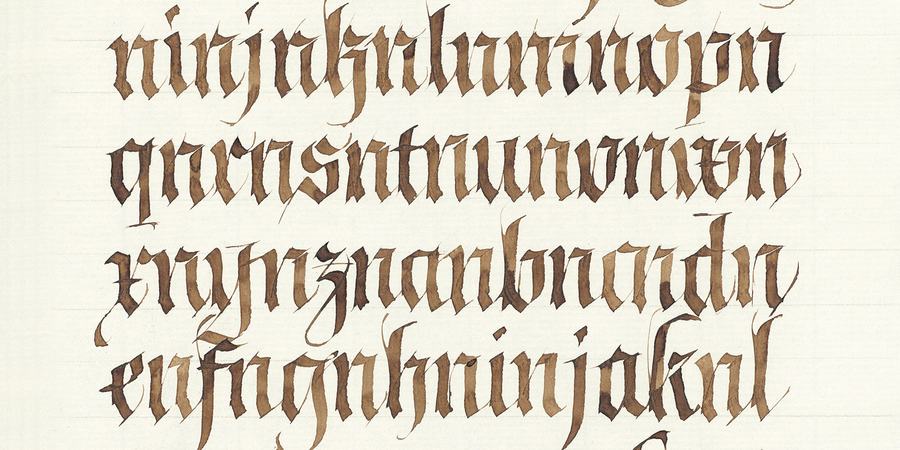 ninjnknlnmnopn
qnrnsntnunvnwn
xnynznanbncndn
enfngnhninjaknl